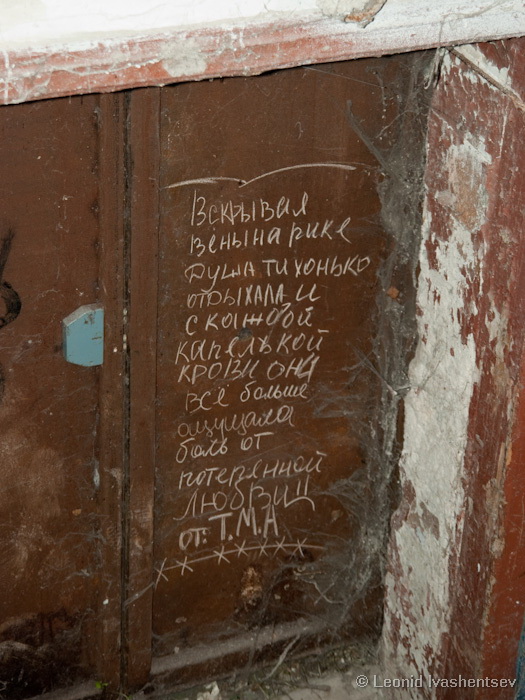 Вскрывая
вены на рике
душа тихонько
отдыхала, и
с каждой
капелькой
крови она
всё больше
ощущала
боль от
потерянной
любви!!
от: Т.М.А
© Leonid Ivashentsev